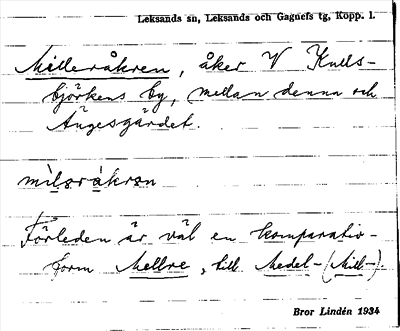 Leksands sn, Leksands och Gagnefs tg, Kopp. l.
Milleråkren, åker V Knuts-
björkens by, mellan denna och
Ängesgärdet.
mìlərákrən
Förleden är väl en komparativ-
form Mellre, till Medel- (Mill-).
Bror Lindén 1934